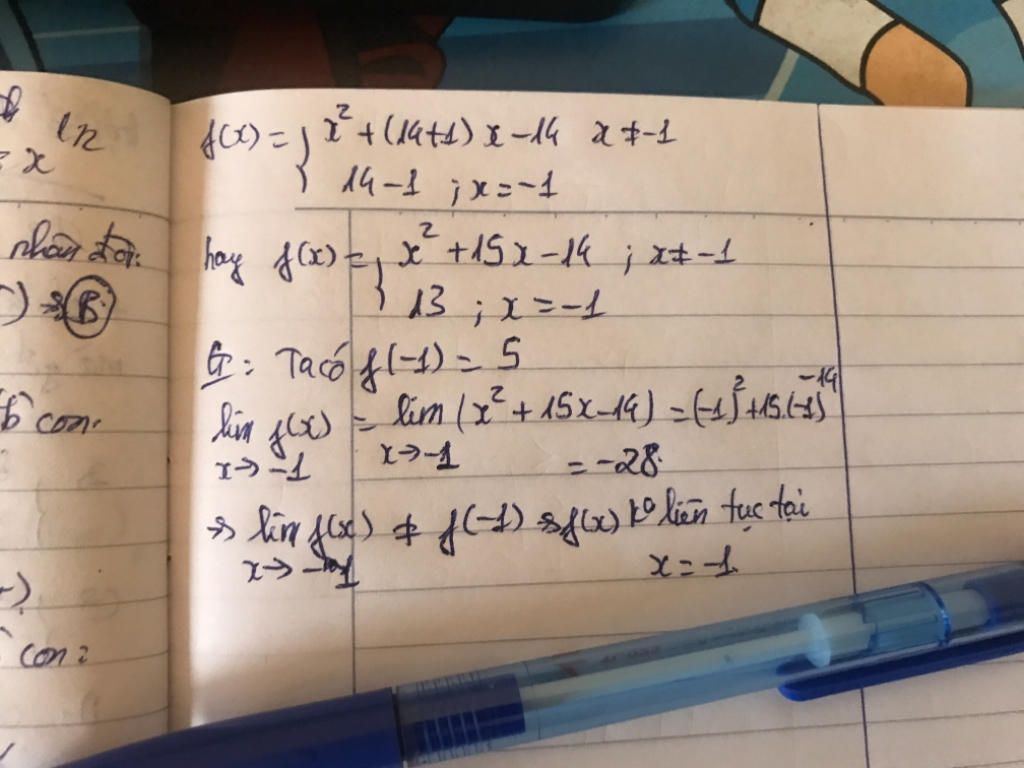 ln
= x
nhân đôi:
B
bộ con.
con:
f(x) = { x² + (14+1) x - 14 x ≠ -1
14 - 1 ; x = -1
hay f(x) = { x² + 15x - 14 ; x ≠ -1
13 ; x = -1
G: Ta có f(-1) = 5
lim f(x) = lim (x² + 15x - 14) = (-1)² + 15.(-1) - 14
x → -1 x → -1 = -28.
⇒ lim f(x) ≠ f(-1) ⇒ f(x) ko liên tục tại
x → -1 x = -1.